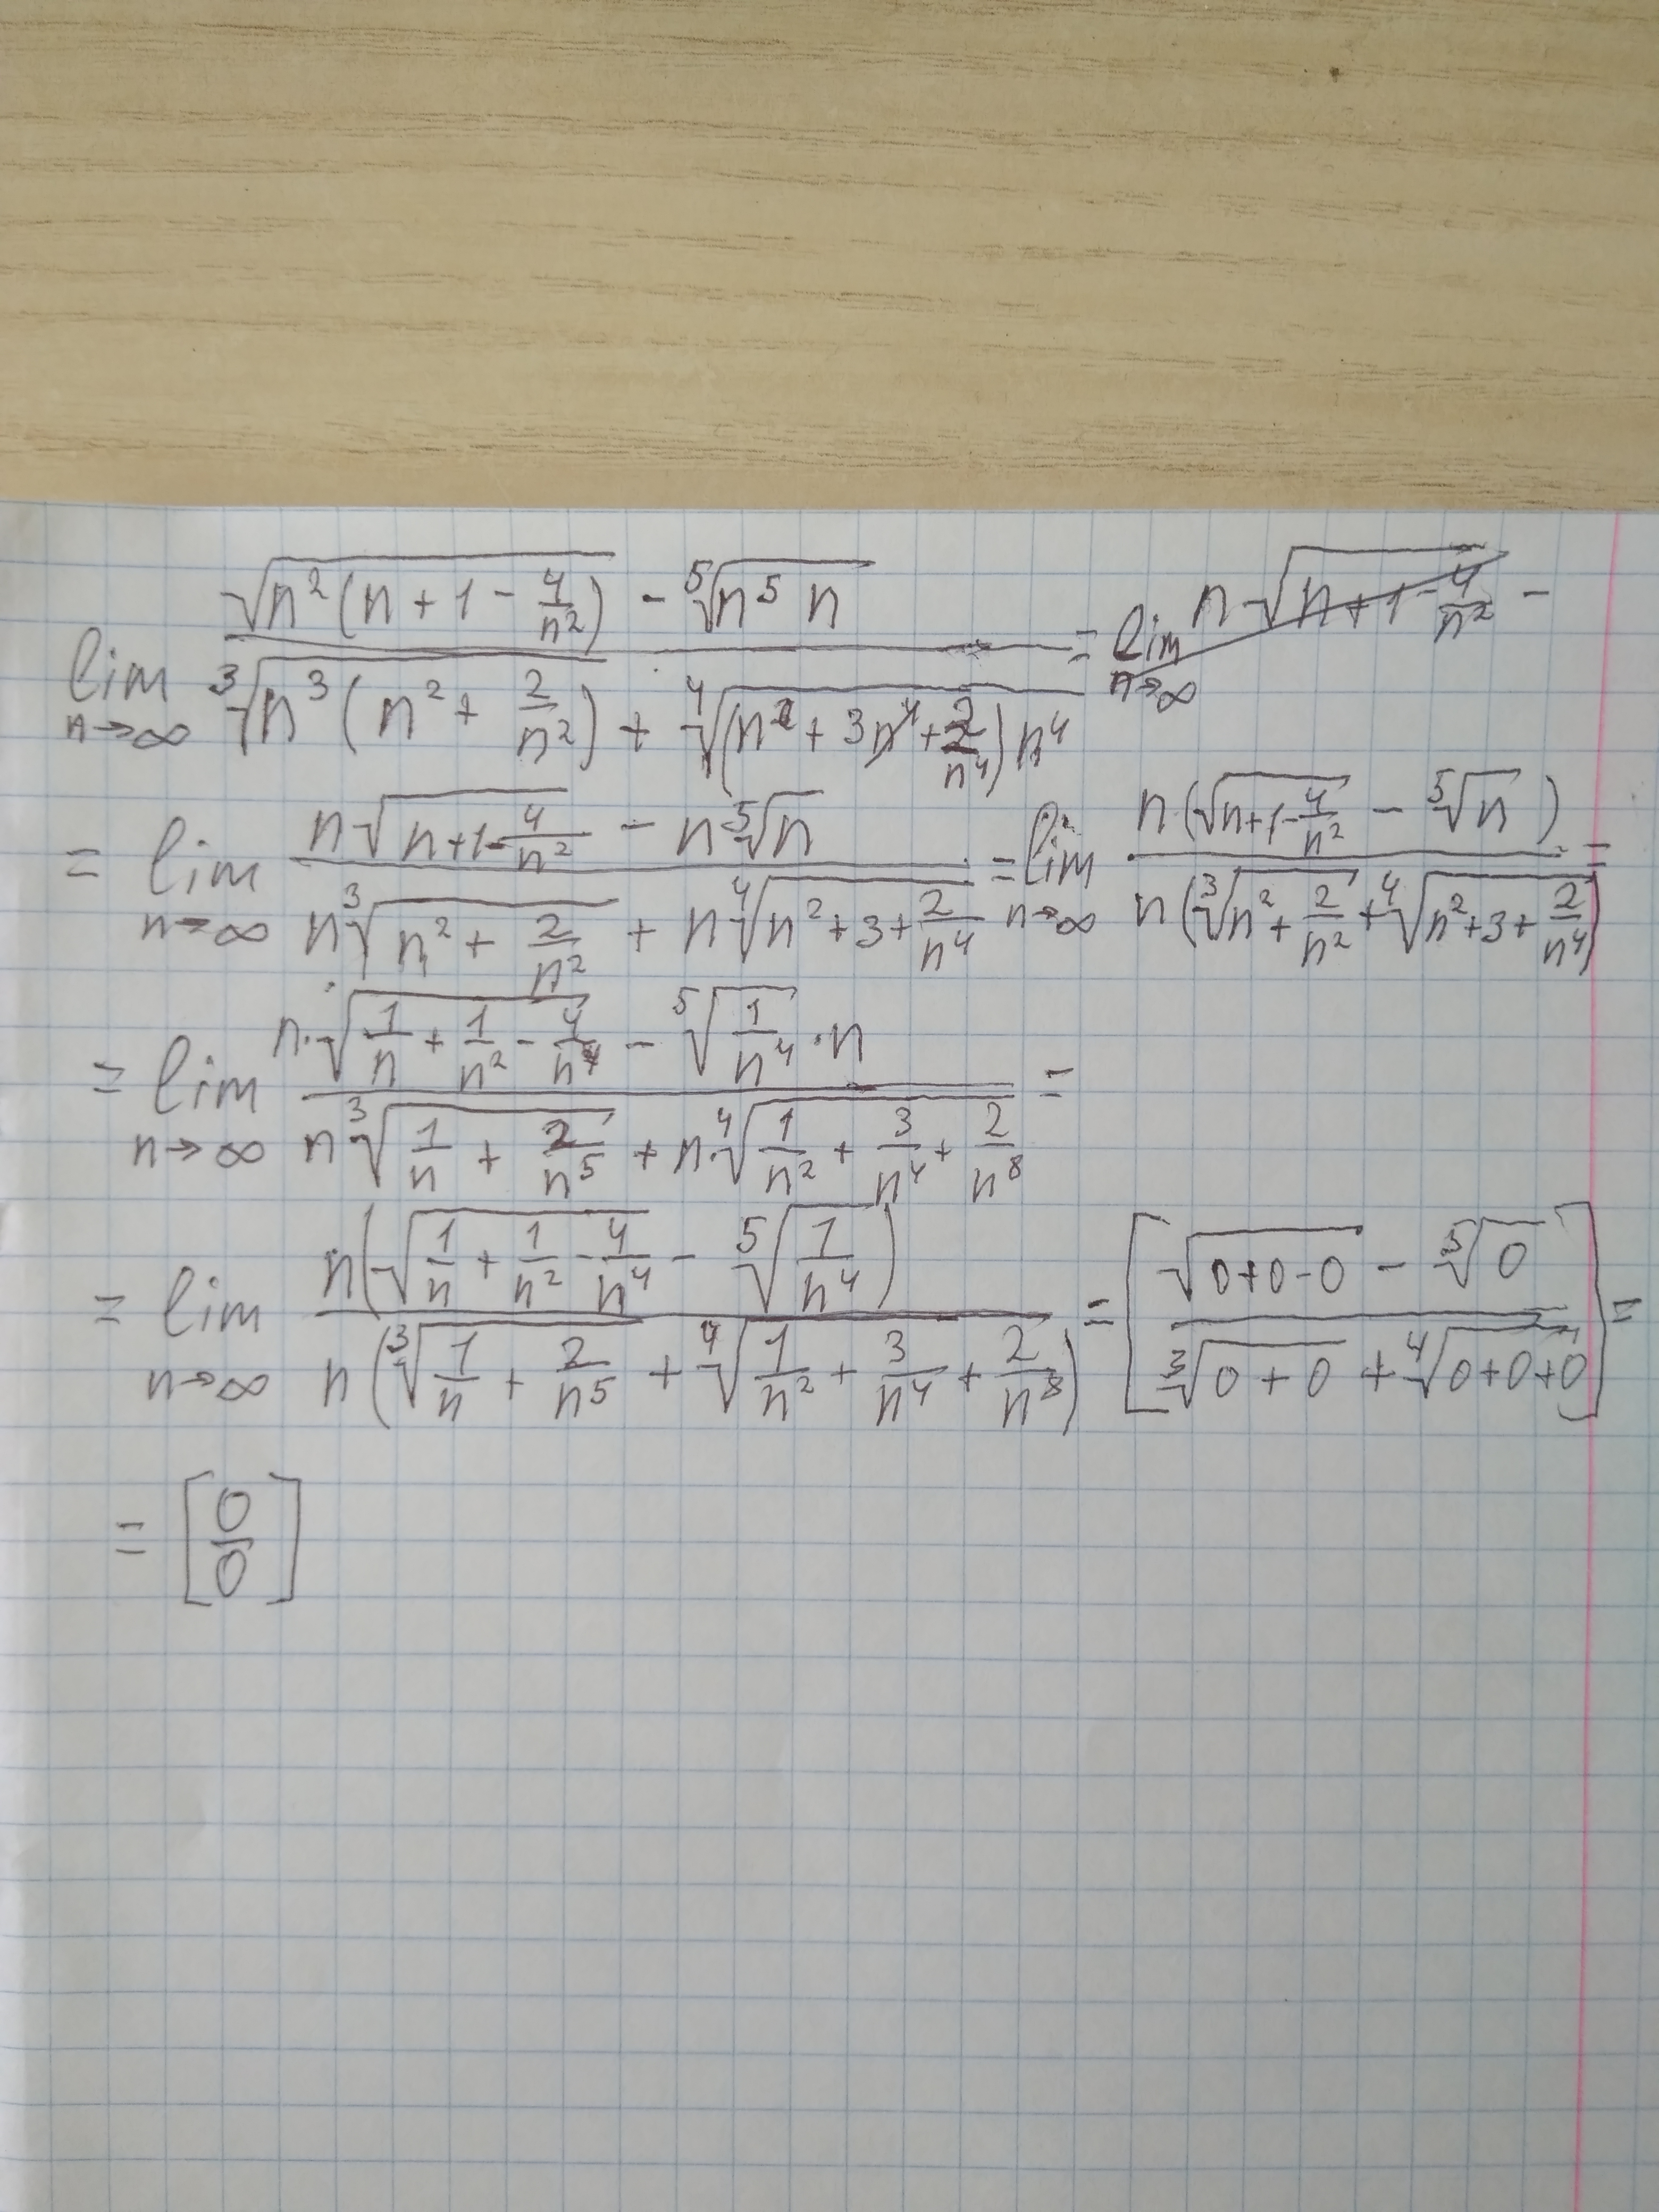 lim n→∞ (√(n²(n + 1 - 4/n²)) - ⁵√(n⁵ n)) / (³√(n³(n² + 2/n²)) + ⁴√((n² + 3 + 2/n⁴) n⁴)) = lim n→∞ n√(n + 1 - 4/n²) -
= lim n→∞ (n√(n+1-4/n²) - n ⁵√n) / (n ³√(n² + 2/n²) + n ⁴√(n² + 3 + 2/n⁴)) = lim n→∞ n(√(n+1-4/n²) - ⁵√n) / n(³√(n² + 2/n²) + ⁴√(n² + 3 + 2/n⁴)) =
= lim n→∞ (n·√(1/n + 1/n² - 4/n⁴) - ⁵√(1/n⁴)·n) / (n ³√(1/n + 2/n⁵) + n·⁴√(1/n² + 3/n⁴ + 2/n⁸)) =
= lim n→∞ n(√(1/n + 1/n² - 4/n⁴) - ⁵√(1/n⁴)) / n(³√(1/n + 2/n⁵) + ⁴√(1/n² + 3/n⁴ + 2/n⁸)) = [(√(0+0-0) - ⁵√0) / (³√(0+0) + ⁴√(0+0+0))] =
= [0/0]